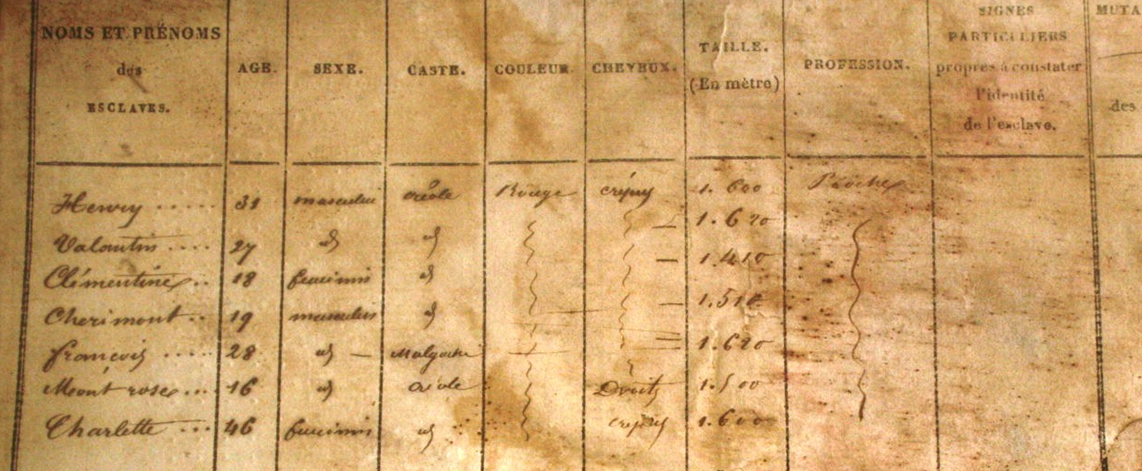 NOMS ET PRÉNOMS des ESCLAVES. AGE. SEXE. CASTE. COULEUR. CHEVEUX. TAILLE. (En mètre) PROFESSION. SIGNES PARTICULIERS propres à constater l'identité de l'esclave. MUTA des
Henry ..... 31 masculin créole Rouge crépus 1.600 Pioche
Valentin .... 27 id id 1.620
Clémentine .. 18 féminin id 1.410
Cherimont .. 19 masculin id 1.510
françois ..... 28 id — Malgache 1.620
Mont rose ... 16 id créole Droits 1.500
Charlette ... 46 féminin id crépus 1.600